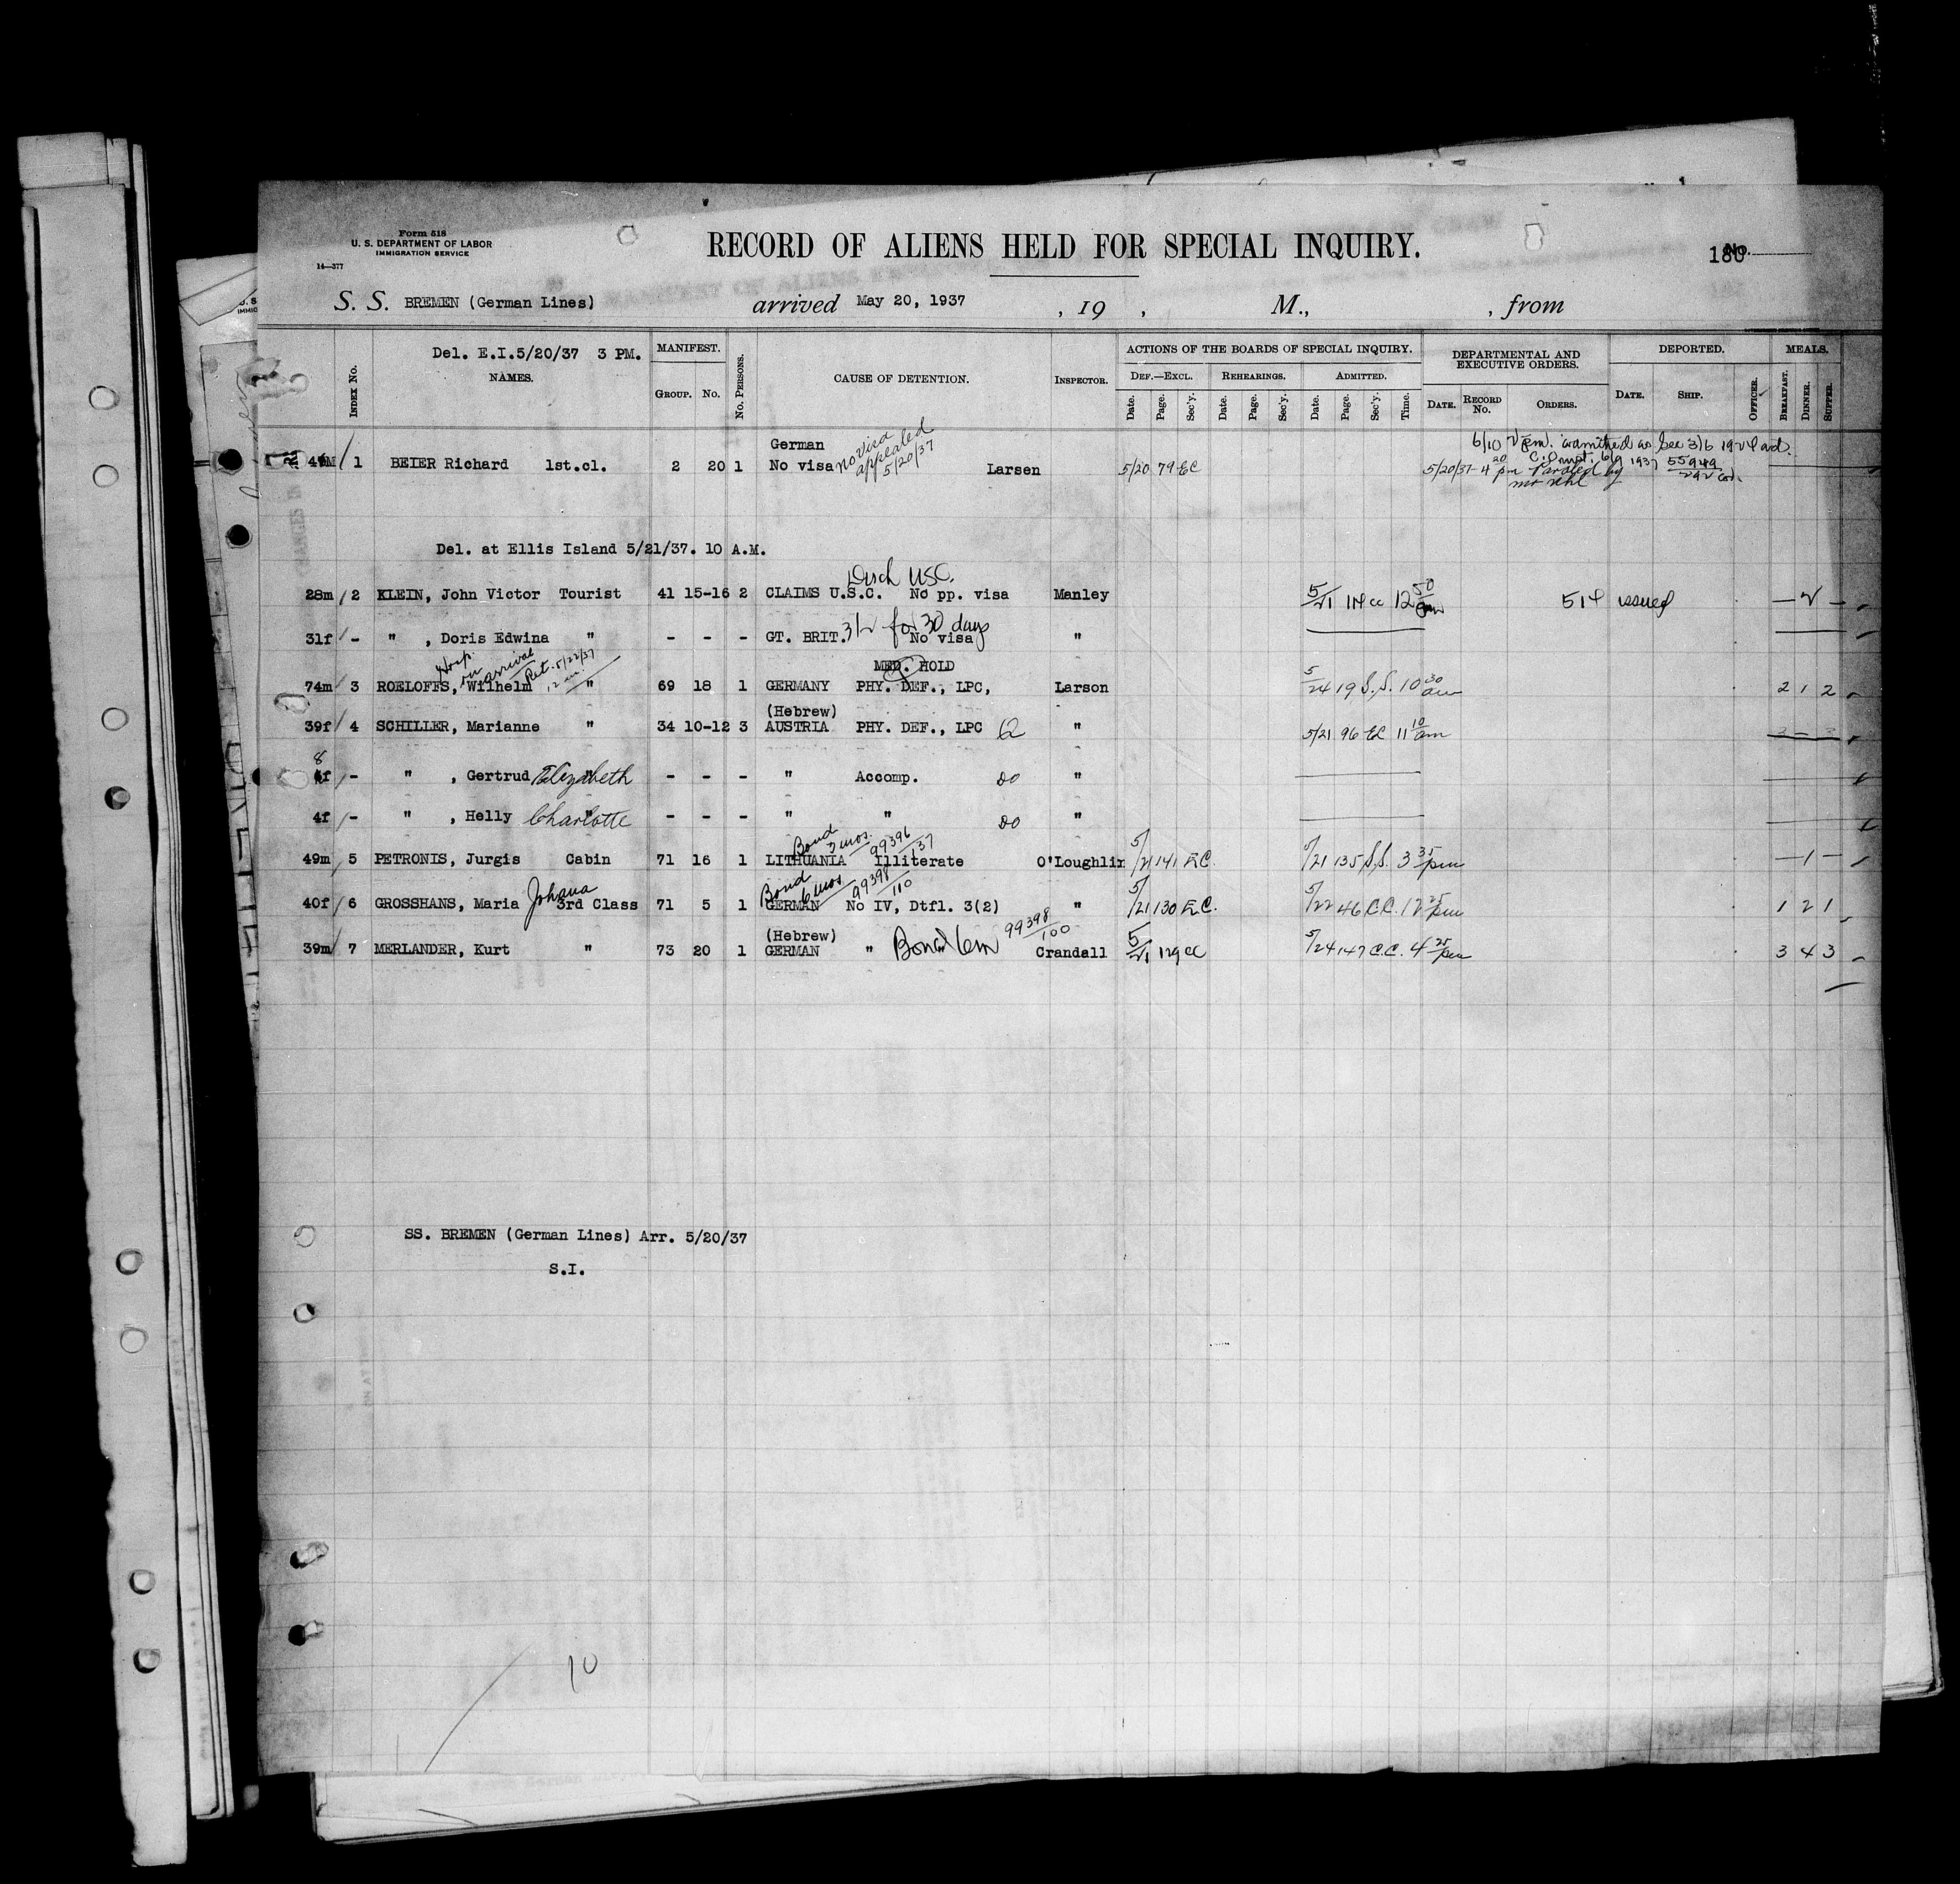 Form 518
U. S. DEPARTMENT OF LABOR
IMMIGRATION SERVICE
14—377
RECORD OF ALIENS HELD FOR SPECIAL INQUIRY.
180 No.
S. S. BREMEN (German Lines) arrived May 20, 1937 , 19 , M., , from
Del. E.I.5/20/37 3 PM.
INDEX No. NAMES. MANIFEST. GROUP. No. No. PERSONS. CAUSE OF DETENTION. INSPECTOR. ACTIONS OF THE BOARDS OF SPECIAL INQUIRY. DEPARTMENTAL AND EXECUTIVE ORDERS. DEPORTED. MEALS.
DEF.—EXCL. REHEARINGS. ADMITTED.
Date. Page. Sec'y. Date. Page. Sec'y. Date. Page. Sec'y. Time. DATE. RECORD No. ORDERS. DATE. SHIP. OFFICER. BREAKFAST. DINNER. SUPPER.
German No visa appealed 5/20/37
6/10 admitted as Sec 3)6 1924 act.
1 BEIER Richard 1st.cl. 2 20 1 No visa Larsen 5/20 79 EC 5/20/37 4 20 pm Paroled by 6/9 1937 55949
Del. at Ellis Island 5/21/37. 10 A.M.
USC.
28m 2 KLEIN, John Victor Tourist 41 15-16 2 CLAIMS U.S.C. No pp. visa Manley 12 50 514 issued
31f - " , Doris Edwina " - - - GT. BRIT. 3/2 for 30 days No visa "
Hosp. on arrival Ret. 5/22/37
MED. HOLD
74m 3 ROELOFFS, Wilhelm " 69 18 1 GERMANY PHY. DEF., LPC, Larson 5/24 19 S.S. 10 30 am 2 1 2
(Hebrew)
39f 4 SCHILLER, Marianne " 34 10-12 3 AUSTRIA PHY. DEF., LPC " 5/21 96 EC 11 10 am 3 - 3
8
f - " , Gertrud Elizabeth " - - - " Accomp. do "
4f - " , Helly Charlotte " - - - " " do "
Bond 3 mos. 99396/137
49m 5 PETRONIS, Jurgis Cabin 71 16 1 LITHUANIA Illiterate O'Loughlin 5/21 141 E.C. 5/21 135 S.S. 3 35 pm - 1 -
Bond 6 mos 99398/110
40f 6 GROSSHANS, Maria Johana 3rd Class 71 5 1 GERMAN No IV, Dtfl. 3(2) " 5/21 130 E.C. 5/22 46 C.C. 12 25 pm 1 2 1
(Hebrew) 99398/100
39m 7 MERLANDER, Kurt " 73 20 1 GERMAN " Bond 6m Crandall 5/21 129 CC 5/24 147 C.C. 4 25 pm 3 4 3
SS. BREMEN (German Lines) Arr. 5/20/37
S.I.
10